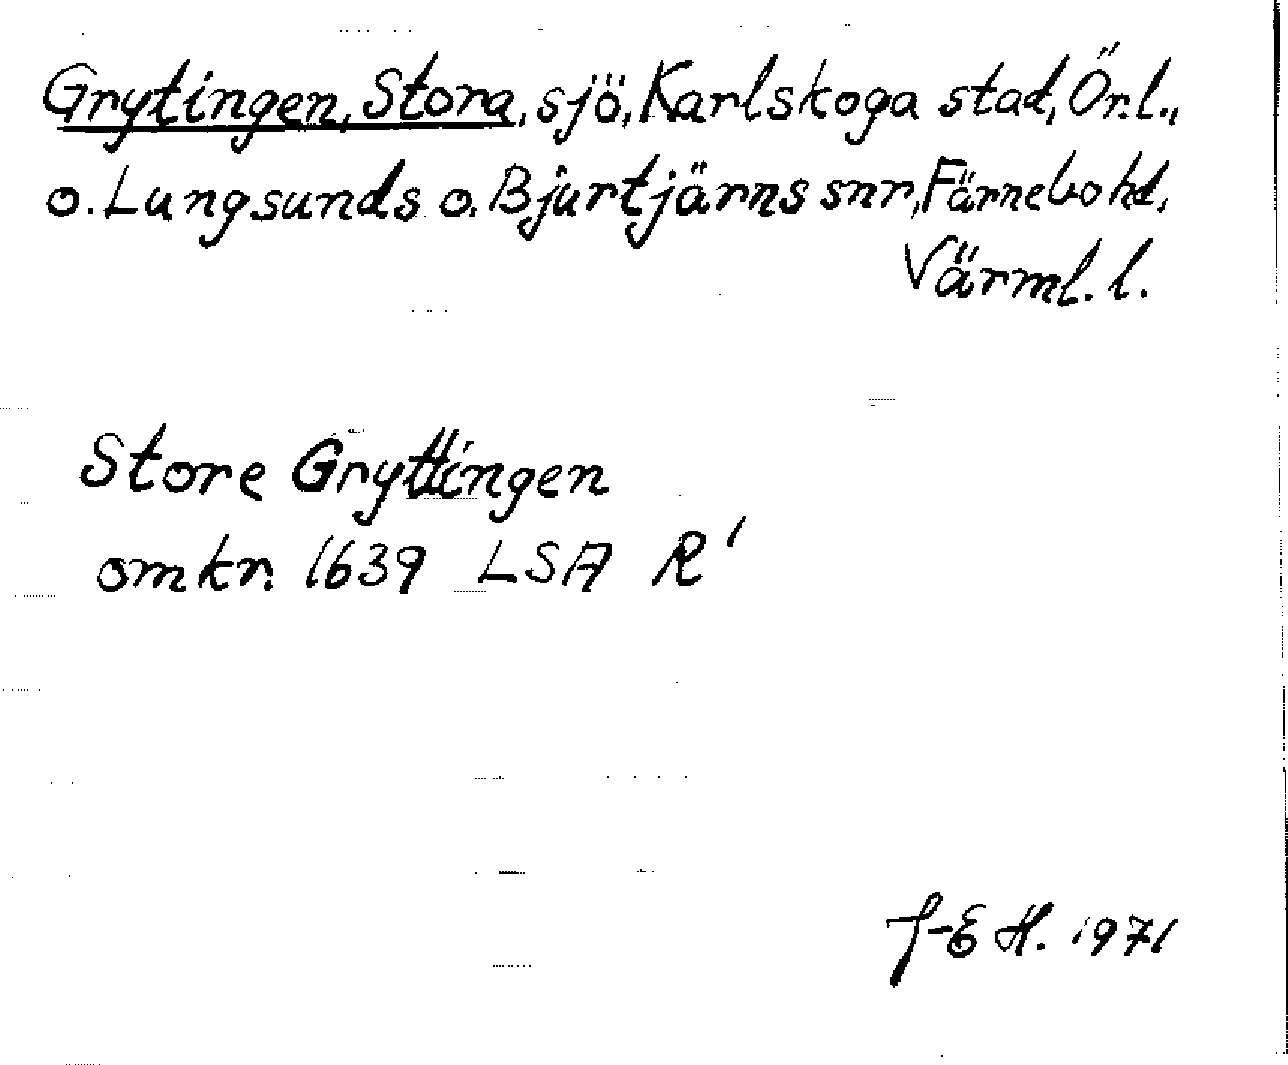 Grytingen, Stora, sjö, Karlskoga stad, Ör.l.,
o. Lungsunds o. Bjurtjärns snr, Färnebo hd,
Värml. l.
Store Gryttingen
omkr. 1639 LSA R'
J-E H. 1971